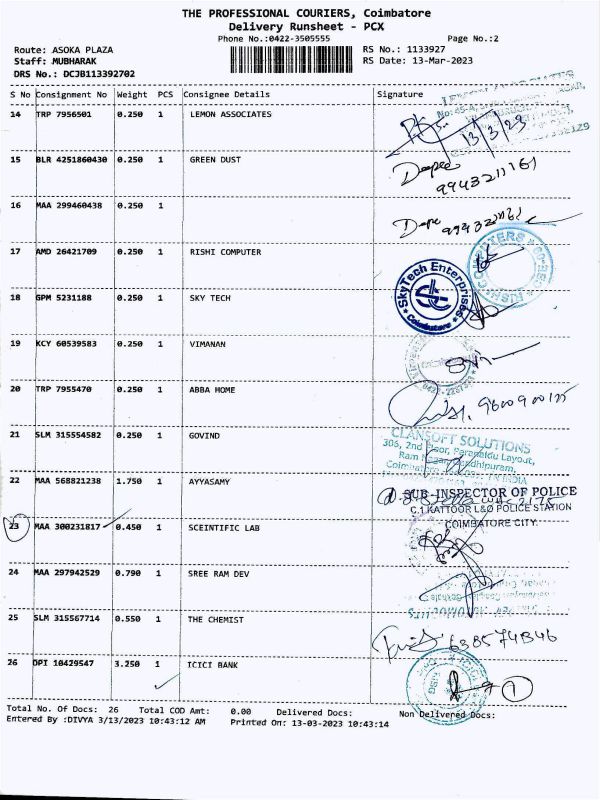 THE PROFESSIONAL COURIERS, Coimbatore
Delivery Runsheet - PCX
Phone No.:0422-3505555 Page No.:2
Route: ASOKA PLAZA RS No.: 1133927
Staff: MUBHARAK RS Date: 13-Mar-2023
DRS No.: DCJB113392702
S No Consignment No Weight PCS Consignee Details Signature
14 TRP 7956501 0.250 1 LEMON ASSOCIATES
13/3/23
15 BLR 4251860430 0.250 1 GREEN DUST
16 MAA 299460438 0.250 1
17 AMD 26421709 0.250 1 RISHI COMPUTER
18 GPM 5231188 0.250 1 SKY TECH
SkyTech Enterprises
Coimbatore
19 KCY 60539583 0.250 1 VIMANAN
20 TRP 7955470 0.250 1 ABBA HOME
21 SLM 315554582 0.250 1 GOVIND
CLANSOFT SOLUTIONS
306, 2nd Floor,
22 MAA 568821238 1.750 1 AYYASAMY
SUB-INSPECTOR OF POLICE
C.1 KATTOOR L&O POLICE STATION
COIMBATORE CITY.
23 MAA 300231817 0.450 1 SCEINTIFIC LAB
24 MAA 297942529 0.790 1 SREE RAM DEV
25 SLM 315567714 0.550 1 THE CHEMIST
26 OPI 10429547 3.250 1 ICICI BANK
1
Total No. Of Docs: 26 Total COD Amt: 0.00 Delivered Docs: Non Delivered Docs:
Entered By :DIVYA 3/13/2023 10:43:12 AM Printed On: 13-03-2023 10:43:14